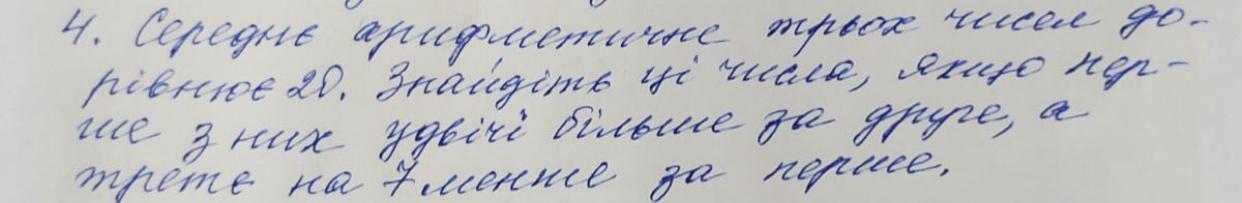 4. Середнє арифметичне трьох чисел до-
рівнює 20. Знайдіть ці числа, якщо пер-
ше з них удвічі більше за друге, а
третє на 7 менше за перше.